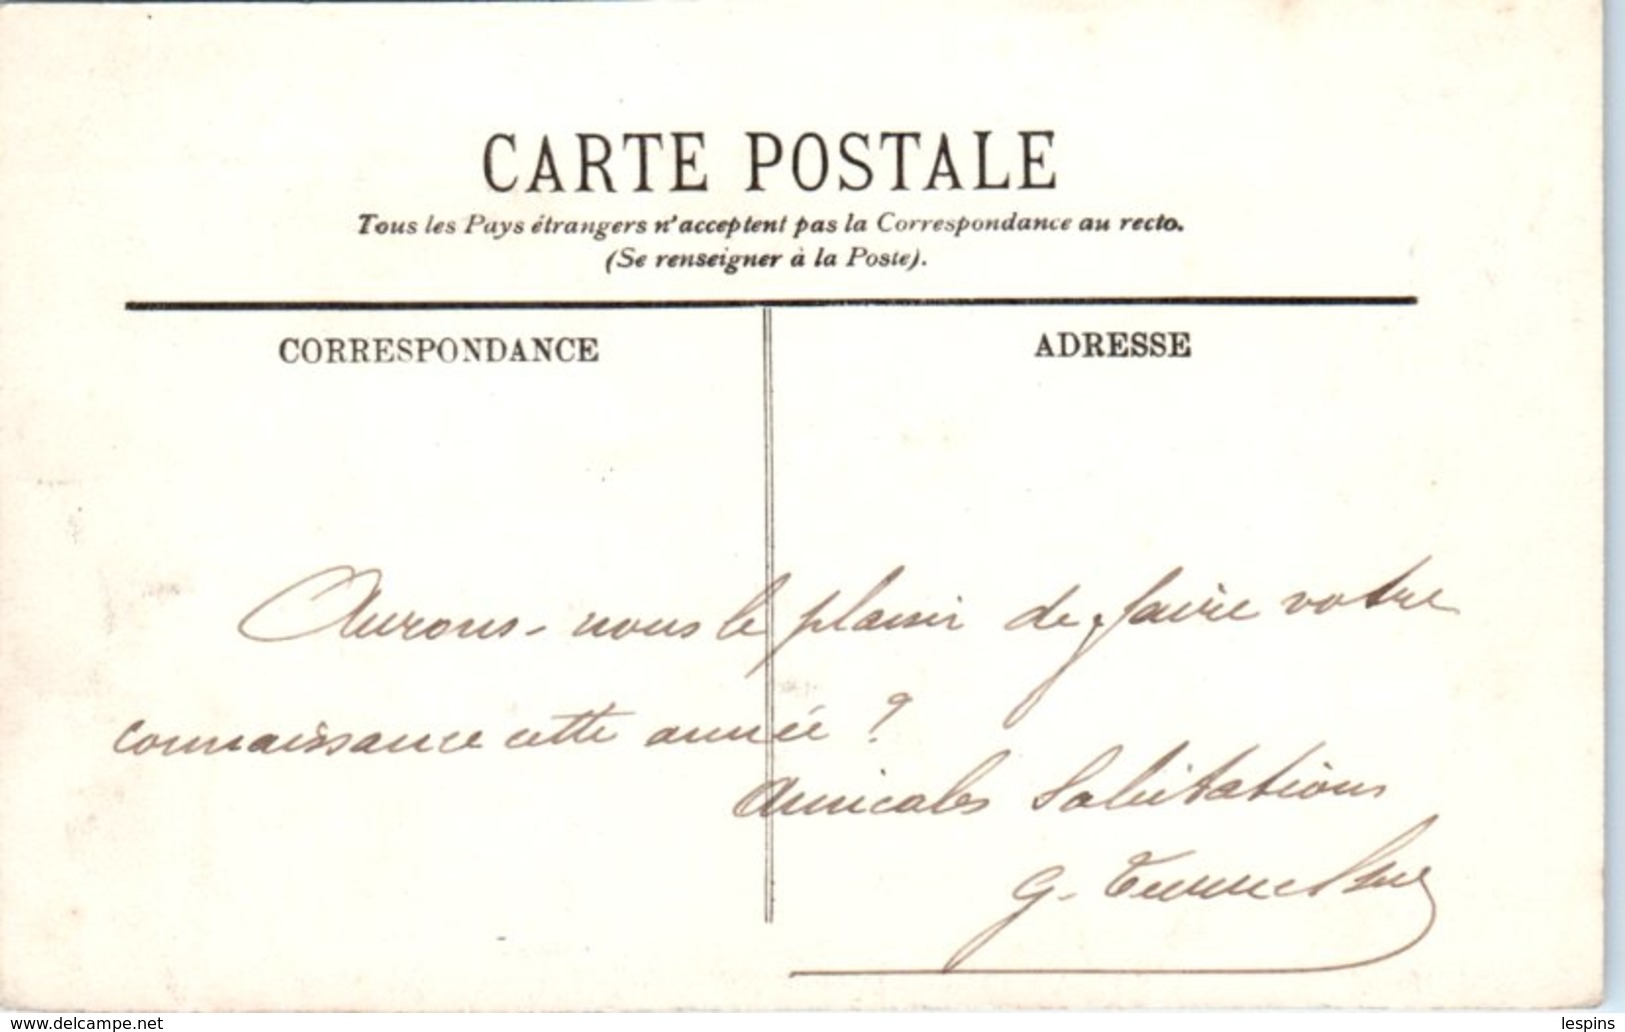 CARTE POSTALE
Tous les Pays étrangers n'acceptent pas la Correspondance au recto.
(Se renseigner à la Poste).
CORRESPONDANCE
ADRESSE
Aurons-nous le plaisir de faire votre
connaissance cette année ?
Amicales Salutations
G.
www.delcampe.net
lespins